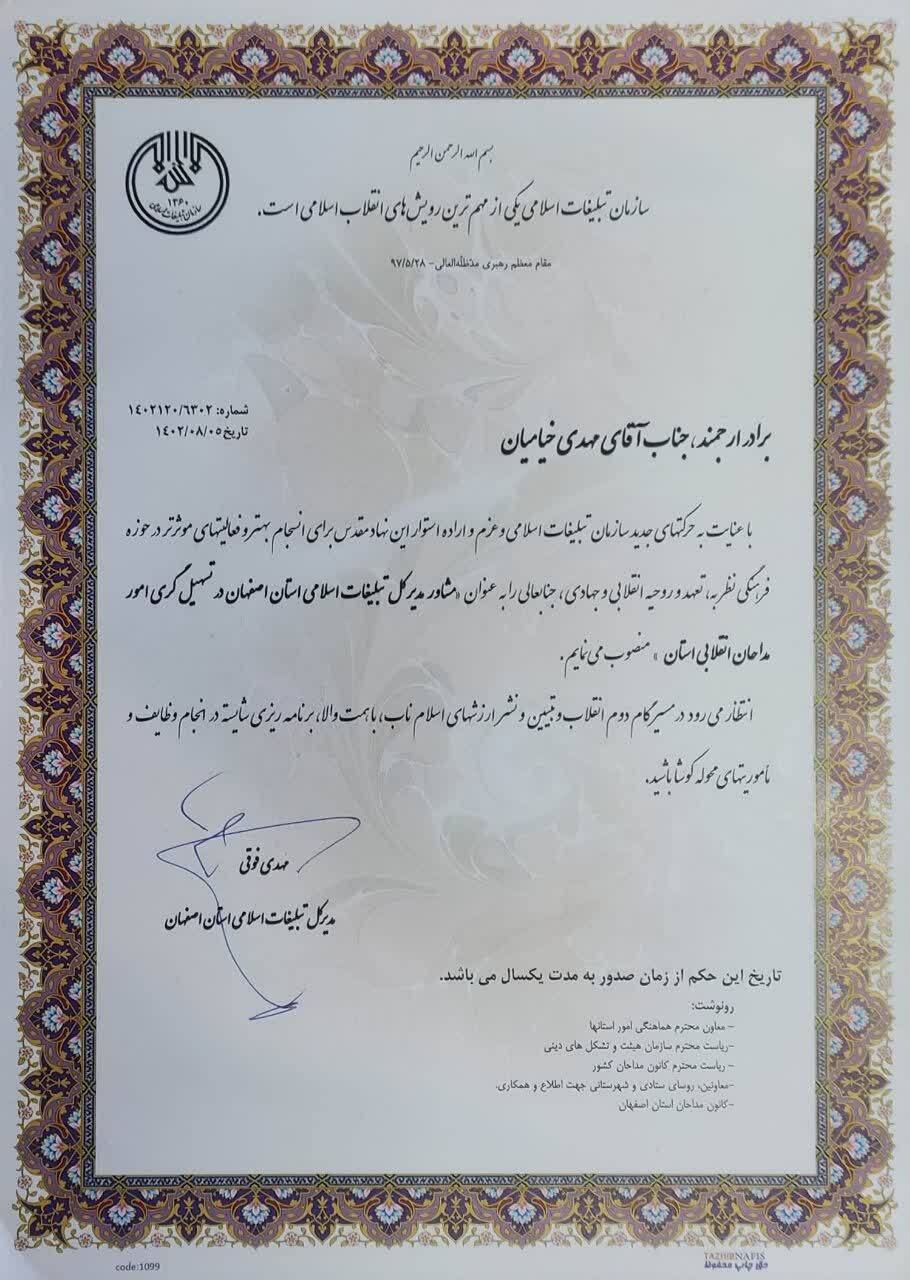 بسم الله الرحمن الرحیم
سازمان تبلیغات اسلامی یکی از مهم ترین رویش های انقلاب اسلامی است.
مقام معظم رهبری مدّظلّه‌العالی- ۹۷/۵/۲۸
۱۳۶۰
سازمان تبلیغات اسلامی
شماره: ۱٤۰۲۱۲۰/٦۳۰۲
تاریخ ۱٤۰۲/۰۸/۰۵
برادر ارجمند، جناب آقای مهدی خیامیان
با عنایت به حرکتهای جدید سازمان تبلیغات اسلامی و عزم و اراده استوار این نهاد مقدس برای انسجام بهتر و فعالیتهای موثرتر در حوزه
فرهنگی نظر به، تعهد و روحیه انقلابی و جهادی، جنابعالی را به عنوان «مشاور مدیرکل تبلیغات اسلامی استان اصفهان در تسهیل گری امور
مداحان انقلابی استان » منصوب می نمایم.
انتظار می رود در مسیر گام دوم انقلاب و تبیین و نشر ارزشهای اسلام ناب، با همت والا، برنامه ریزی شایسته در انجام وظایف و
مأموریتهای محوله کوشا باشید.
مهدی فوقی
مدیرکل تبلیغات اسلامی استان اصفهان
تاریخ این حکم از زمان صدور به مدت یکسال می باشد.
رونوشت:
- معاون محترم هماهنگی امور استانها
-ریاست محترم سازمان هیئت و تشکل های دینی
- ریاست محترم کانون مداحان کشور
-معاونین، روسای ستادی و شهرستانی جهت اطلاع و همکاری.
-کانون مداحان استان اصفهان
code:1099
TAZHIBNAFIS
حق چاپ محفوظ